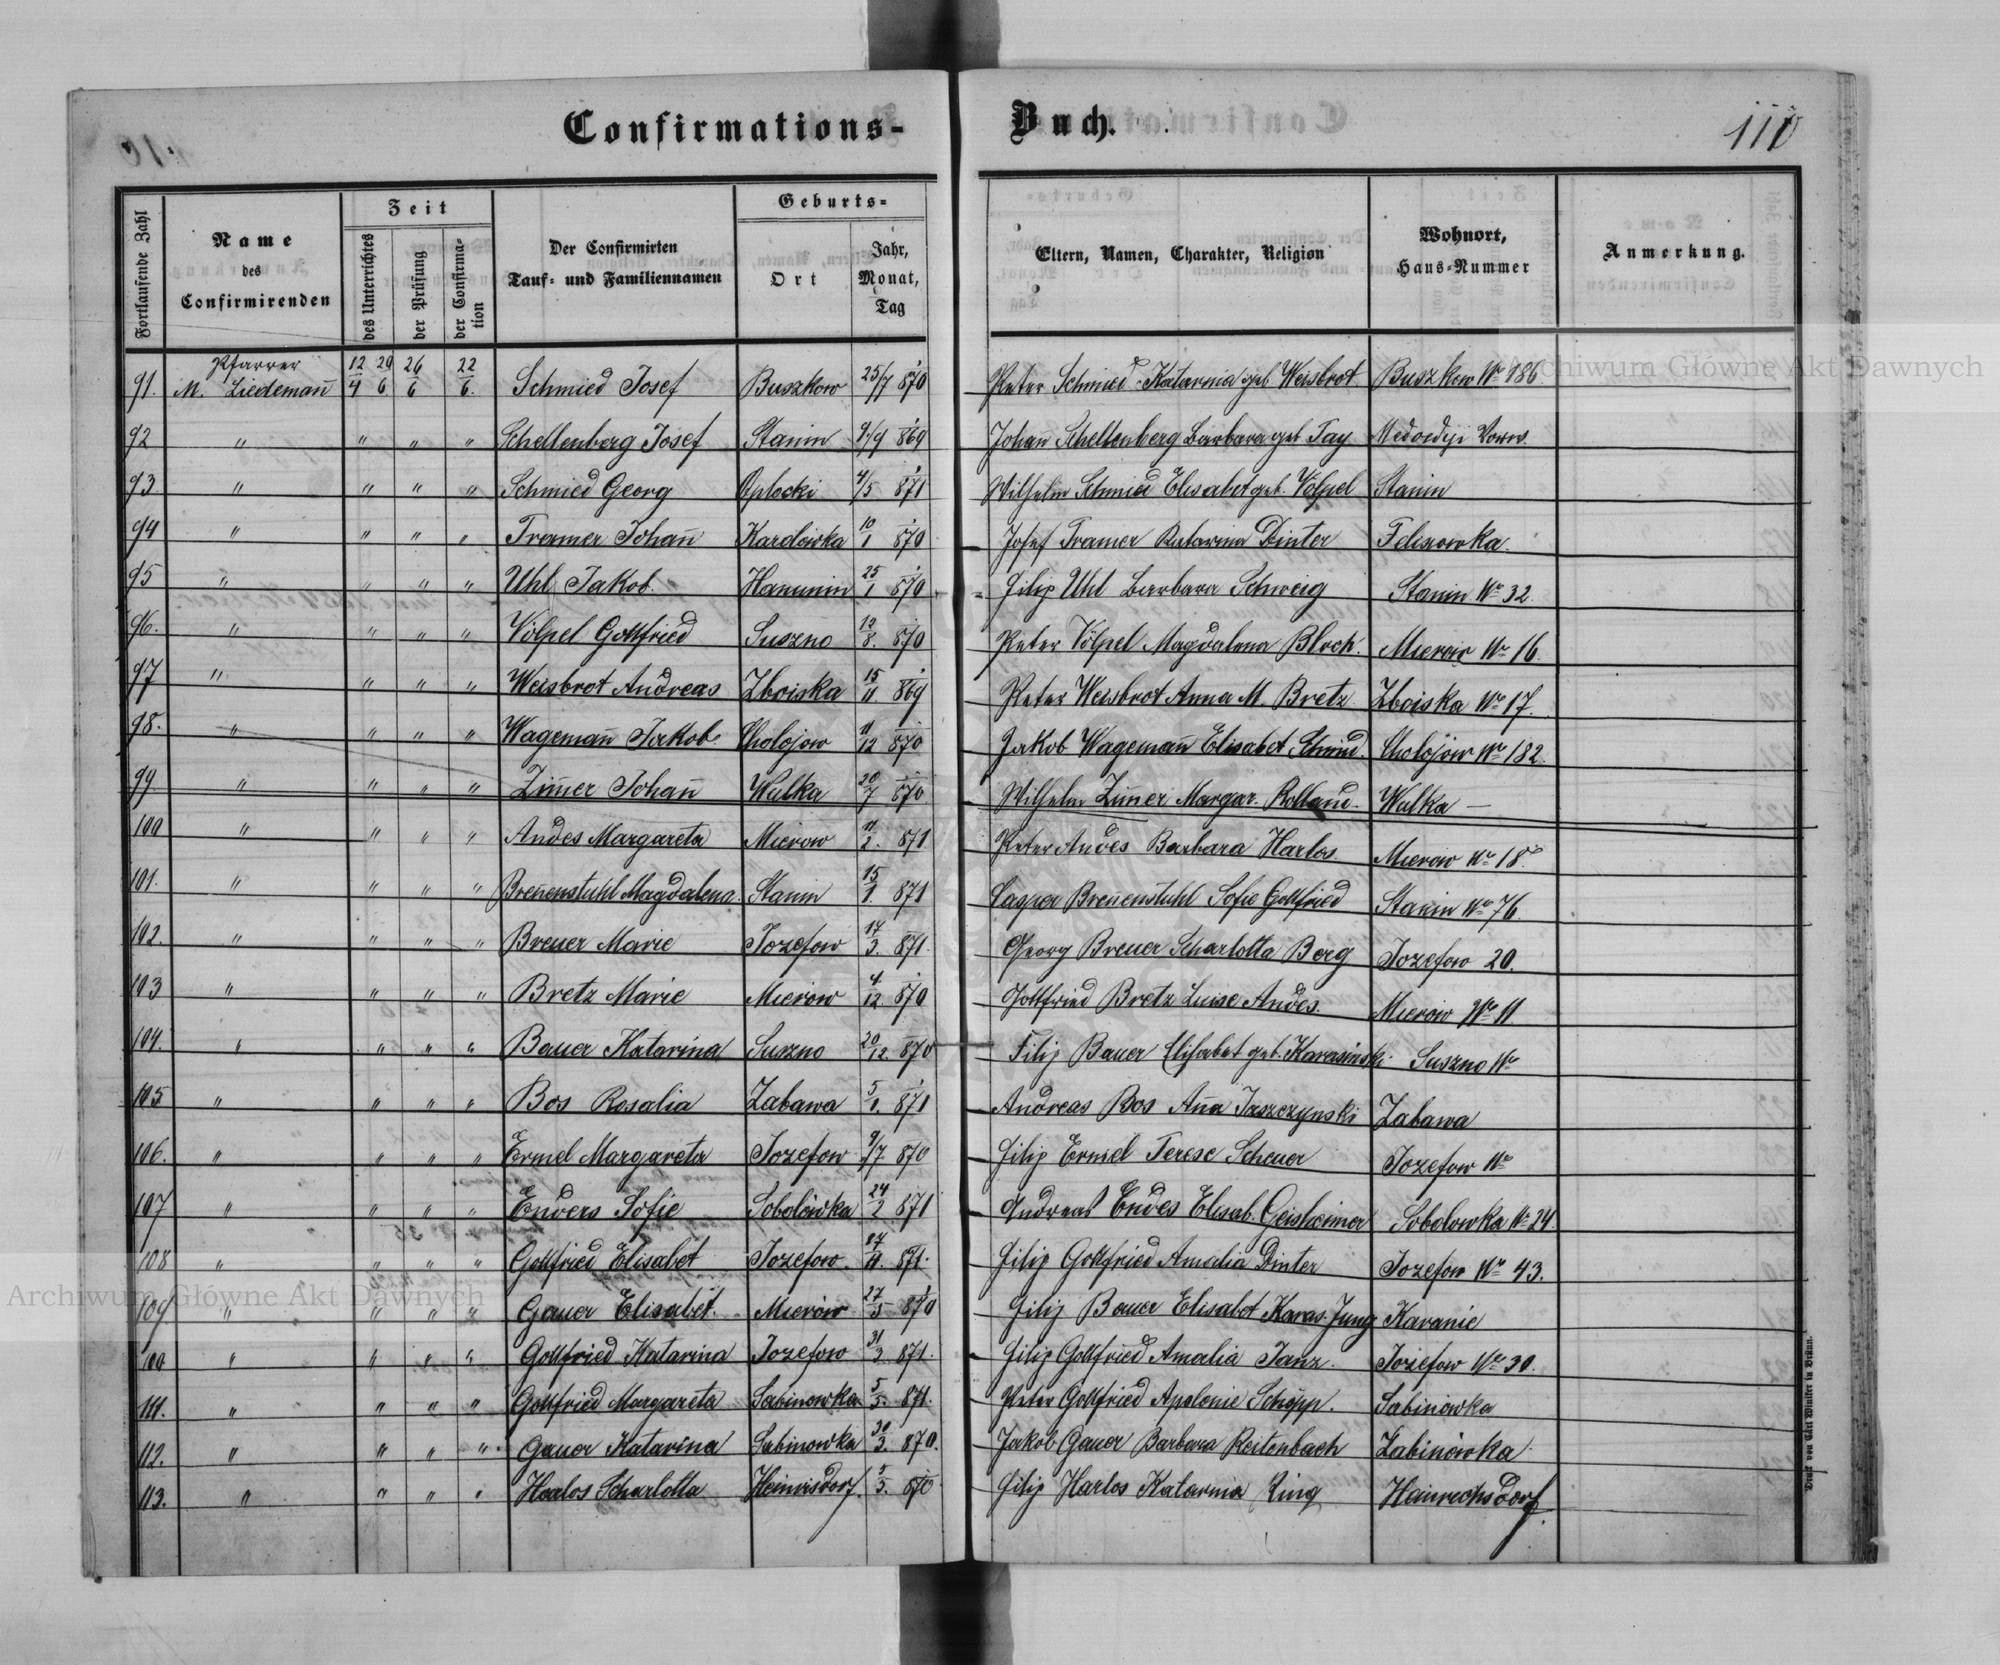 Confirmations-Buch.
110
Fortlaufende Zahl
Name des Confirmirenden
Zeit
des Unterrichtes
der Prüfung
der Confirmation
Der Confirmirten Tauf- und Familiennamen
Geburts-
Ort
Jahr, Monat, Tag
Eltern, Namen, Charakter, Religion
Wohnort, Haus-Nummer
Anmerkung.
91. Pfarrer M. Liedemañ 12/4 29/6 26/6 22/6. Schmied Josef Buszkow 25/7 870 Peter Schmied Katarina geb Weisbrot Buszkow No 186
92 " " " " Schellenberg Josef Stanin 9/9 869 Johañ Schellenberg Barbara geb Tay Vorw.
93. " " " " Schmied Georg Oplocki 4/5 871 Wilhelm Schmied Elisabet geb. Völpel Stanin
94 " " " " Tramer Johañ Karolówka 10/1 870 Josef Tramer Katarina Dinter
95 " " " " Uhl Jakob. Hanunin 25/1 870 Filip Uhl Barbara Schweig Stanin No 32.
96. " " " " Völpel Gottfried Suszno 12/8. 870 Peter Völpel Magdalena Bloch. Mierow No 16.
97 " " " " Weisbrot Andreas Zboiska 15/11. 869 Peter Weisbrot Anna M. Bretz Zboiska No 17.
98. " " " " Wagemañ Jakob. Cholojow 11/12 870 Jakob Wagemañ Elisabet Schmid. Cholojów No 182.
99. " " " " Zim̄er Johañ Wulka 20/7 870 Wilhelm Zim̄er Margar. Rolland. Wulka —
100 " " " " Andes Margareta Mierow 11/2. 871 Peter Andes Barbara Harlos. Mierow No 18.
101. " " " " Breñenstuhl Magdalena. Stanin 15/1. 871 Casper Breñenstuhl Sofie Gottfried Stanin No 76.
102. " " " " Breuer Marie Jozefow 17/3. 871. Georg Breuer Scharlotta Berg Jozefow 20.
103 " " " " Bretz Marie Mierow 4/12. 870 Gottfried Bretz Luise Andes. Mierow No 11.
104. " " " " Bauer Katarina Suszno 20/12. 870 Filip Bauer Elisabet geb. Karasinski. Suszno No
105 " " " " Bos Rosalia Zabawa 5/1. 871 Andreas Bos Aña Jaszczynski Zabawa
106. " " " " Ermel Margareta Jozefow 9/7 870 Filip Ermel Terese Scheuer Jozefow No
107 " " " " Enders Sofie Sobolówka 24/2 871 Andreas Endes Elisab. Geisheimer Sobolowka No 24.
108 " " " " Gottfried Elisabet Jozefow. 17/11. 871. Filip Gottfried Amalia Dinter Jozefow No 43.
109 " " " " Gauer Elisabet. Mierów 27/5 870 Filip Bauer Elisabet Karas. Jung Karanie
100 " " " " Gottfried Katarina Jozefow 31/3 871. Filip Gottfried Amalia Janz. Jozefow No 30.
111. " " " " Gottfried Margareta Sabinowka 5/5. 871. Peter Gottfried Apolonie Schöpp. Sabinówka
112. " " " " Gauer Katarina Sabinowka 30/3. 870. Jakob Gauer Barbara Reitenbach Zabinówka
113. " " " " Harlos Scharlotta 5/3. 870 Filip Harlos Katarina Ring Heinrechsdorf.
Druck von Carl Winiker in Brünn.
Archiwum Główne Akt Dawnych
Archiwum Główne Akt Dawnych